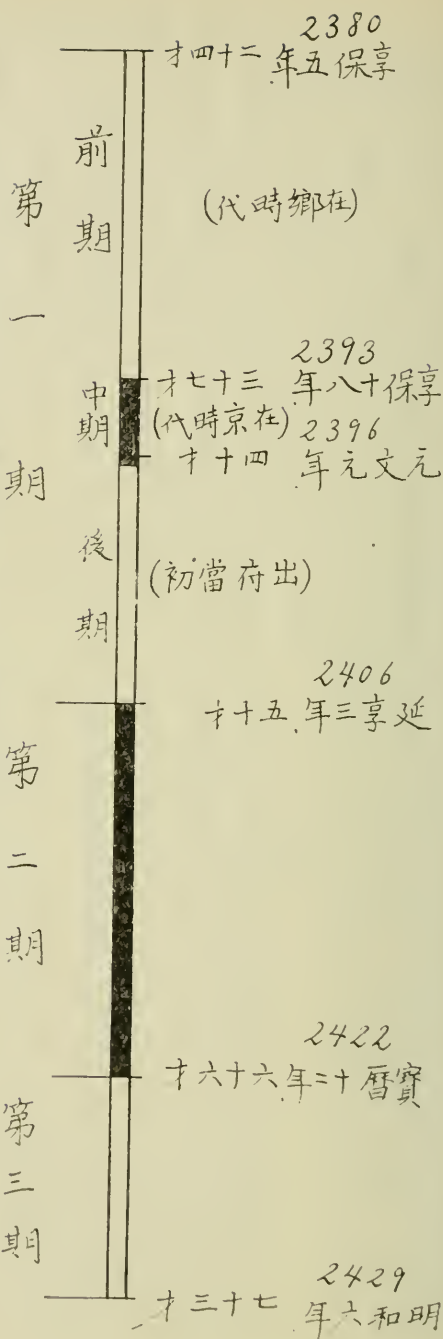 2380
享保五年 二十四才
第一期
前期
(在鄕時代)
2393
享保十八年 三十七才
中期
(在京時代)
2396
元文元年 四十才
後期
(出府當初)
2406
延享三年 五十才
第二期
2422
寶暦十二年 六十六才
第三期
2429
明和六年 七十三才